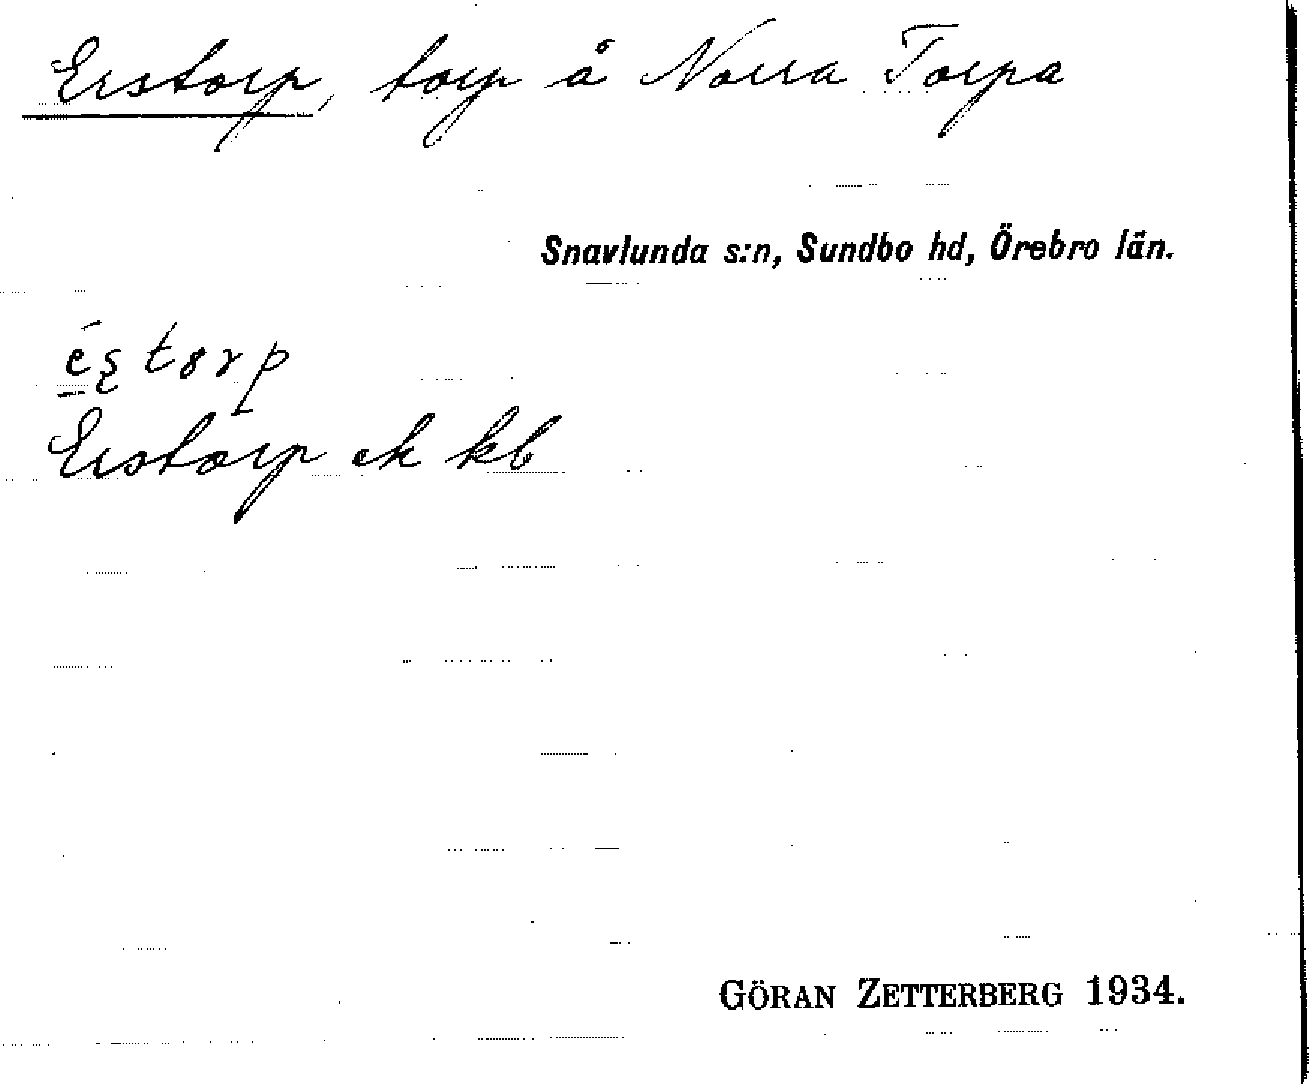 Erstorp, torp å Norra Torpa
Snavlunda s:n, Sundbo hd, Örebro län.
Erstorp ek kb
GÖRAN ZETTERBERG 1934.